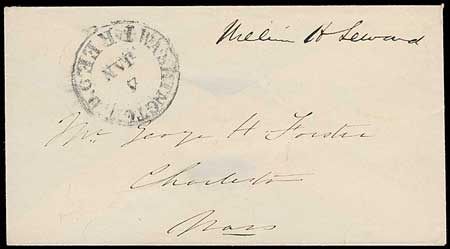 William H Seward
WASHINGTON D.C.
FREE
JAN
Mr. George H Forster
Charleston
Mass